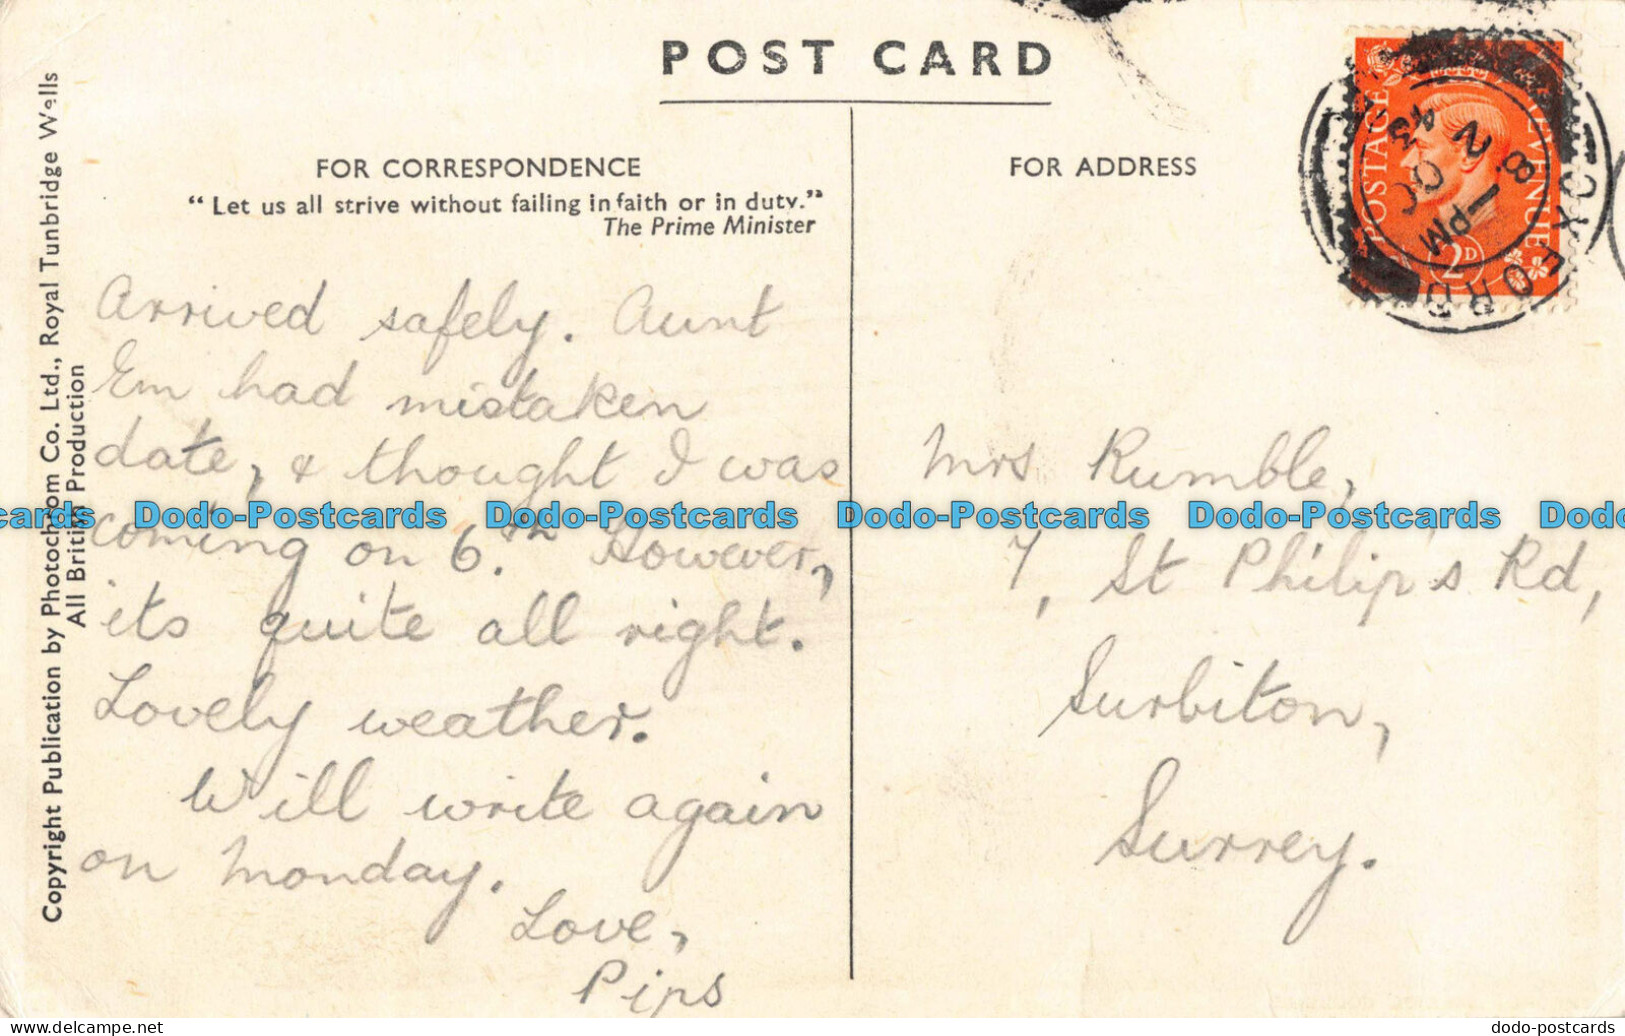 POST CARD
FOR CORRESPONDENCE
"Let us all strive without failing in faith or in duty."
The Prime Minister
Arrived safely. Aunt
Em had mistaken
date, & thought I was
coming on 6.th However,
its quite all right.
Lovely weather.
Will write again
on Monday.
Love,
Pips
FOR ADDRESS
Mrs Rumble,
7, St Philip's Rd,
Surbiton,
Surrey.
Copyright Publication by Photochrom Co. Ltd., Royal Tunbridge Wells
All British Production
POSTAGE REVENUE
2D
OXFORD
1 PM
8
OC
43
cards Dodo-Postcards Dodo-Postcards Dodo-Postcards Dodo-Postcards Dodo
dodo-postcards.com
dodo-postcards